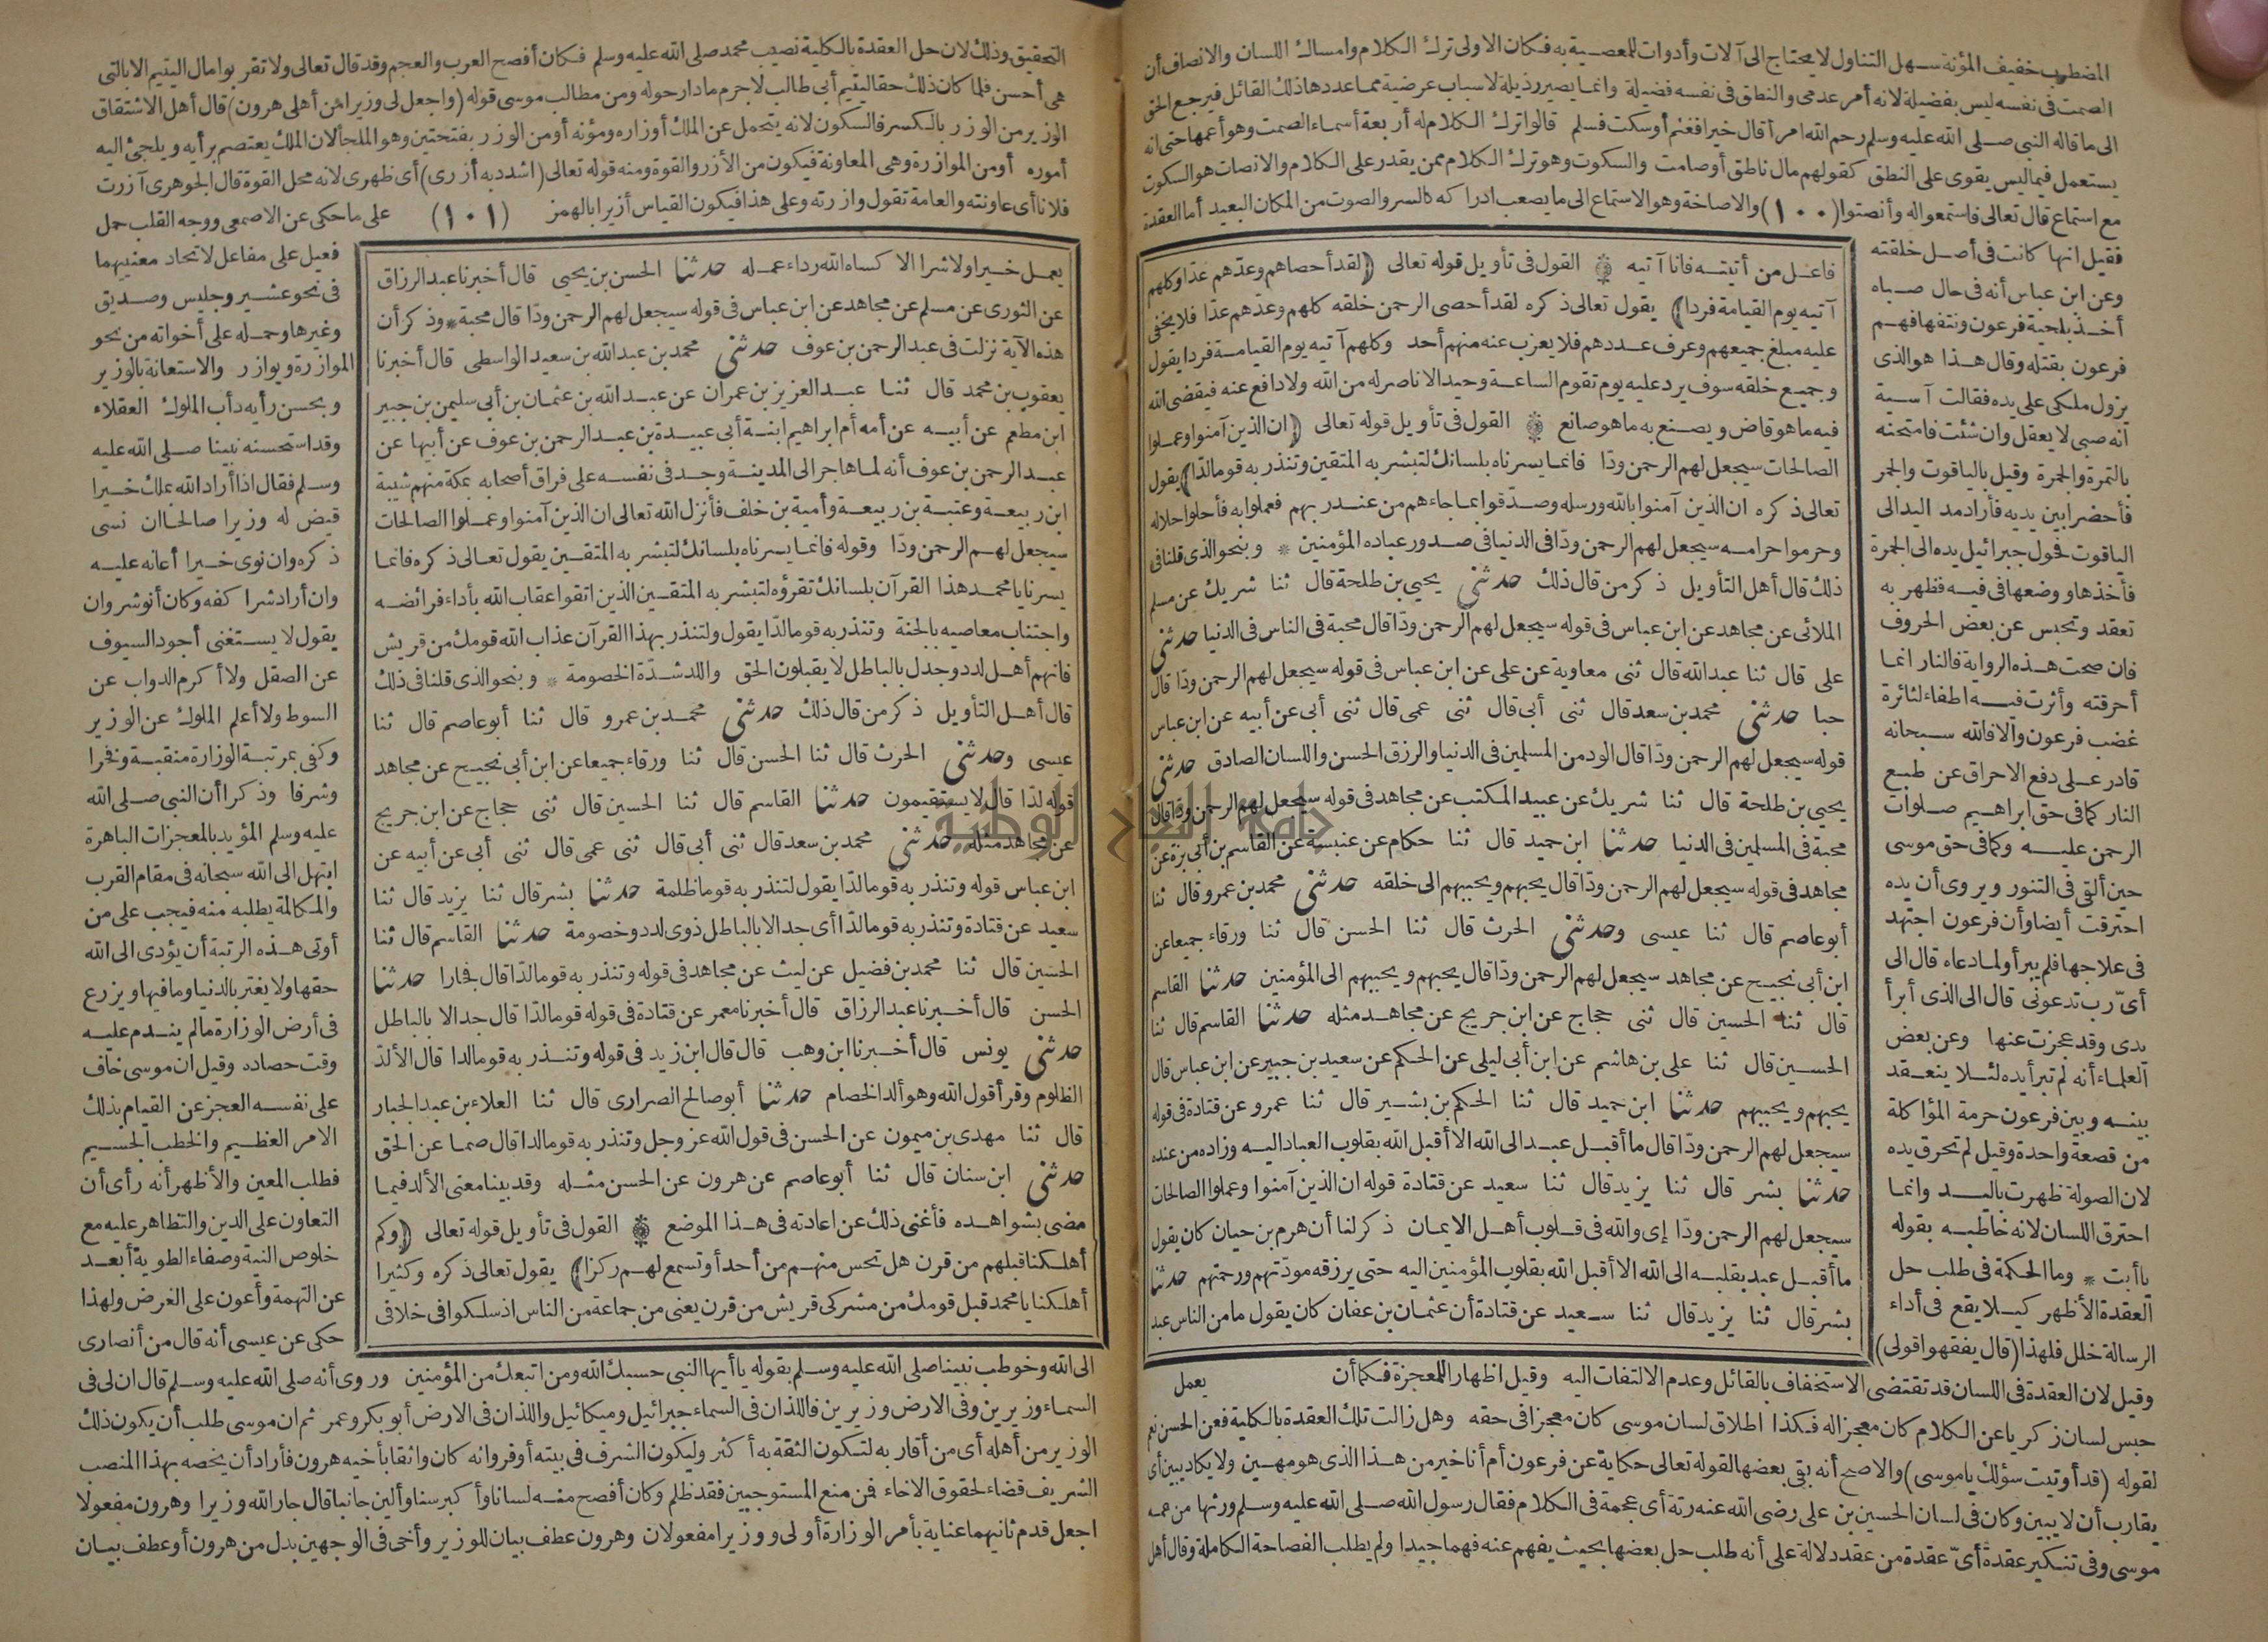 المضطرب خفيف المؤنة سهل التناول لا يحتاج الى آلات وأدوات للمعصية به فكان الاولى ترك الكلام وامساك اللسان والانصاف أن
الصمت فى نفسه ليس بفضيلة لانه أمر عدمى والنطق فى نفسه فضيلة وانما يصير رذيلة لاسباب عرضية مما عددها ذلك القائل فيرجع الحق
الى ما قاله النبى صلى الله عليه وسلم رحم الله امرأ قال خيرا فغنم أو سكت فسلم قالوا ترك الكلام له أربعة أسماء الصمت وهو أعمها حتى انه
يستعمل فيما ليس يقوى على النطق كقولهم مال ناطق أو صامت والسكوت وهو ترك الكلام ممن يقدر على الكلام والانصات هو السكوت
مع استماع قال تعالى فاستمعوا له وأنصتوا (١٠٠) والاصاخة وهو الاستماع الى ما يصعب ادراكه كالسر والصوت من المكان البعيد أما العقدة
فقيل انها كانت فى أصل خلقته
وعن ابن عباس أنه فى حال صباه
أخذ بلحية فرعون ونتفها فهم
فرعون بقتله وقال هذا هو الذى
يزول ملكى على يده فقالت آسية
انه صبى لا يعقل وان شئت فامتحنه
بالتمرة والجمرة وقيل بالياقوت والجمر
فأحضر ابين يديه فأراد مد اليد الى
الياقوت فحول جبرائيل يده الى الجمرة
فأخذها ووضعها فى فيه فظهر به
تعقد وتحبس عن بعض الحروف
فان صحت هذه الرواية فالنار انما
أحرقته وأثرت فيه اطفاء لنائرة
غضب فرعون والا فالله سبحانه
قادر على دفع الاحراق عن طبع
النار كما فى حق ابراهيم صلوات
الرحمن عليه وكما فى حق موسى
حين ألقى فى التنور ويروى أن يده
احترقت أيضا وأن فرعون اجتهد
فى علاجها فلم يبرأ ولما دعاه قال الى
أىّ رب تدعونى قال الى الذى أبرأ
يدى وقد عجزت عنها وعن بعض
العلماء أنه لم تبرأ يده لئلا ينعقد
بينه وبين فرعون حرمة المؤاكلة
من قصعة واحدة وقيل لم تحرق يده
لان الصولة ظهرت باليد وانما
احترق اللسان لانه خاطبه بقوله
يا أبت * وما الحكمة فى طلب حل
العقدة الأظهر كيلا يقع فى أداء
الرسالة خلل فلهذا (قال يفقهوا قولى)
فاعل من أتيته فانا آتيه القول فى تأويل قوله تعالى (لقد أحصاهم وعدّهم عدّا وكلهم
آتيه يوم القيامة فردا) يقول تعالى ذكره لقد أحصى الرحمن خلقه كلهم وعدّهم عدّا فلا يخفى
عليه مبلغ جميعهم وعرف عددهم فلا يعزب عنه منهم أحد وكلهم آتيه يوم القيامة فردا يقول
وجميع خلقه سوف يرد عليه يوم تقوم الساعة وحيدا لا ناصر له من الله ولا دافع عنه فيقضى الله
فيه ما هو قاض ويصنع به ما هو صانع القول فى تأويل قوله تعالى (ان الذين آمنوا وعملوا
الصالحات سيجعل لهم الرحمن ودّا فانما يسرناه بلسانك لتبشر به المتقين وتنذر به قوما لدّا) يقول
تعالى ذكره ان الذين آمنوا بالله ورسله وصدّقوا بما جاءهم من عند ربهم فعملوا به فأحلوا حلاله
وحرموا حرامه سيجعل لهم الرحمن ودّا فى الدنيا فى صدور عباده المؤمنين * وبنحو الذى قلنا فى
ذلك قال أهل التأويل ذكر من قال ذلك حدثنى يحيى بن طلحة قال ثنا شريك عن مسلم
الملائى عن مجاهد عن ابن عباس فى قوله سيجعل لهم الرحمن ودّا قال محبة فى الناس فى الدنيا حدثنى
على قال ثنا عبد الله قال ثنى معاوية عن على عن ابن عباس فى قوله سيجعل لهم الرحمن ودّا قال
حبا حدثنى محمد بن سعد قال ثنى أبى قال ثنى عمى قال ثنى أبى عن أبيه عن ابن عباس
قوله سيجعل لهم الرحمن ودّا قال الود من المسلمين فى الدنيا والرزق الحسن واللسان الصادق حدثنى
يحيى بن طلحة قال ثنا شريك عن عبيد المكتب عن مجاهد فى قوله سيجعل لهم الرحمن ودّا قال
محبة فى المسلمين فى الدنيا حدثنا ابن حميد قال ثنا حكام عن عنبسة عن القاسم بن أبى بزة عن
مجاهد فى قوله سيجعل لهم الرحمن ودّا قال يحبهم ويحببهم الى خلقه حدثنى محمد بن عمرو قال ثنا
أبو عاصم قال ثنا عيسى وحدثنى الحرث قال ثنا الحسن قال ثنا ورقاء جميعا عن
ابن أبى نجيح عن مجاهد سيجعل لهم الرحمن ودّا قال يحبهم ويحببهم الى المؤمنين حدثنا القاسم
قال ثنا الحسين قال ثنى حجاج عن ابن جريج عن مجاهد مثله حدثنا القاسم قال ثنا
الحسين قال ثنا على بن هاشم عن ابن أبى ليلى عن الحكم عن سعيد بن جبير عن ابن عباس قال
يحبهم ويحببهم حدثنا ابن حميد قال ثنا الحكم بن بشير قال ثنا عمرو عن قتادة فى قوله
سيجعل لهم الرحمن ودّا قال ما أقبل عبد الى الله الا أقبل الله بقلوب العباد اليه وزاده من عنده
حدثنا بشر قال ثنا يزيد قال ثنا سعيد عن قتادة قوله ان الذين آمنوا وعملوا الصالحات
سيجعل لهم الرحمن ودّا إى والله فى قلوب أهل الايمان ذكر لنا أن هرم بن حيان كان يقول
ما أقبل عبد بقلبه الى الله الا أقبل الله بقلوب المؤمنين اليه حتى يرزقه مودّتهم ورحمتهم حدثنا
بشر قال ثنا يزيد قال ثنا سعيد عن قتادة أن عثمان بن عفان كان يقول ما من الناس عبد
يعمل
وقيل لان العقدة فى اللسان قد تقتضى الاستخفاف بالقائل وعدم الالتفات اليه وقيل اظهارا للمعجزة فكما أن
حبس لسان زكريا عن الكلام كان معجزا له فكذا اطلاق لسان موسى كان معجزا فى حقه وهل زالت تلك العقدة بالكلية فعن الحسن نعم
لقوله (قد أوتيت سؤلك ياموسى) والاصح أنه بقى بعضها لقوله تعالى حكاية عن فرعون أم أنا خير من هذا الذى هو مهين ولا يكاد يبين أى
يقارب أن لا يبين وكان فى لسان الحسين بن على رضى الله عنه رتة أى عجمة فى الكلام فقال رسول الله صلى الله عليه وسلم ورثها من عمه
موسى وفى تنكير عقدة أىّ عقدة من عقد دلالة على أنه طلب حل بعضها بحيث يفهم عنه فهما جيدا ولم يطلب الفصاحة الكاملة وقال أهل
التحقيق وذلك لان حل العقدة بالكلية نصيب محمد صلى الله عليه وسلم فكان أفصح العرب والعجم وقد قال تعالى ولا تقربوا مال اليتيم الا بالتى
هى أحسن فلما كان ذلك حقا ليتيم أبى طالب لا جرم ما دار حوله ومن مطالب موسى قوله (واجعل لى وزيرا من أهلى هرون) قال أهل الاشتقاق
الوزير من الوزر بالكسر فالسكون لانه يتحمل عن الملك أوزاره ومؤنه أو من الوزر بفتحتين وهو الملجأ لان الملك يعتصم برأيه ويلجئ اليه
أموره أو من الموازرة وهى المعاونة فيكون من الأزر والقوة ومنه قوله تعالى (اشدد به أزرى) أى ظهرى لانه محل القوة قال الجوهرى آزرت
فلانا أى عاونته والعامة تقول وازرته وعلى هذا فيكون القياس أزيرا بالهمز (١٠١) على ما حكى عن الاصمعى ووجه القلب حمل
فعيل على مفاعل لاتحاد معنييهما
فى نحو عشير وجليس وصديق
وغيرها وحمله على أخواته من نحو
الموازرة ويوازر والاستعانة بالوزير
وبحسن رأيه دأب الملوك العقلاء
وقد استحسنه نبينا صلى الله عليه
وسلم فقال اذا أراد الله بملك خيرا
قيض له وزيرا صالحا ان نسى
ذكره وان نوى خيرا أعانه عليه
وان أراد شرا كفه وكان أنوشروان
يقول لا يستغنى أجود السيوف
عن الصقل ولا أكرم الدواب عن
السوط ولا أعلم الملوك عن الوزير
وكفى بمرتبة الوزارة منقبة وفخرا
وشرفا وذكرا أن النبى صلى الله
عليه وسلم المؤيد بالمعجزات الباهرة
ابتهل الى الله سبحانه فى مقام القرب
والمكالمة يطلبه منه فيجب على من
أوتى هذه الرتبة أن يؤدى الى الله
حقها ولا يغتر بالدنيا وما فيها ويزرع
فى أرض الوزارة ما لم يندم عليه
وقت حصاده وقيل ان موسى خاف
على نفسه العجز عن القيام بذلك
الامر العظيم والخطب الجسيم
فطلب المعين والأظهر أنه رأى أن
التعاون على الدين والتظاهر عليه مع
خلوص النية وصفاء الطوية أبعد
عن التهمة وأعون على الغرض ولهذا
حكى عن عيسى أنه قال من أنصارى
يعمل خيرا ولا شرا الا كساه الله رداء عمله حدثنا الحسن بن يحيى قال أخبرنا عبد الرزاق
عن الثورى عن مسلم عن مجاهد عن ابن عباس فى قوله سيجعل لهم الرحمن ودّا قال محبة * وذكر أن
هذه الآية نزلت فى عبد الرحمن بن عوف حدثنى محمد بن عبد الله بن سعيد الواسطى قال أخبرنا
يعقوب بن محمد قال ثنا عبد العزيز بن عمران عن عبد الله بن عثمان بن أبى سليمن بن جبير
ابن مطعم عن أبيه عن أمه أم ابراهيم ابنة أبى عبيدة بن عبد الرحمن بن عوف عن أبيها عن
عبد الرحمن بن عوف أنه لما هاجر الى المدينة وجد فى نفسه على فراق أصحابه بمكة منهم شيبة
ابن ربيعة وعتبة بن ربيعة وأمية بن خلف فأنزل الله تعالى ان الذين آمنوا وعملوا الصالحات
سيجعل لهم الرحمن ودّا وقوله فانما يسرناه بلسانك لتبشر به المتقين يقول تعالى ذكره فانما
يسرنا يا محمد هذا القرآن بلسانك تقرؤه لتبشر به المتقين الذين اتقوا عقاب الله بأداء فرائضه
واجتناب معاصيه بالجنة وتنذر به قوما لدّا يقول ولتنذر بهذا القرآن عذاب الله قومك من قريش
فانهم أهل لدد وجدل بالباطل لا يقبلون الحق واللد شدّة الخصومة * وبنحو الذى قلنا فى ذلك
قال أهل التأويل ذكر من قال ذلك حدثنى محمد بن عمرو قال ثنا أبو عاصم قال ثنا
عيسى وحدثنى الحرث قال ثنا الحسن قال ثنا ورقاء جميعا عن ابن أبى نجيح عن مجاهد
قوله لدّا قال لا يستقيمون حدثنا القاسم قال ثنا الحسين قال ثنى حجاج عن ابن جريج
عن مجاهد مثله حدثنى محمد بن سعد قال ثنى أبى قال ثنى عمى قال ثنى أبى عن أبيه عن
ابن عباس قوله وتنذر به قوما لدّا يقول لتنذر به قوما ظلمة حدثنا بشر قال ثنا يزيد قال ثنا
سعيد عن قتادة وتنذر به قوما لدّا أى جدالا بالباطل ذوى لدد وخصومة حدثنا القاسم قال ثنا
الحسين قال ثنا محمد بن فضيل عن ليث عن مجاهد فى قوله وتنذر به قوما لدّا قال فجارا حدثنا
الحسن قال أخبرنا عبد الرزاق قال أخبرنا معمر عن قتادة فى قوله قوما لدّا قال جدالا بالباطل
حدثنى يونس قال أخبرنا ابن وهب قال قال ابن زيد فى قوله وتنذر به قوما لدا قال الألدّ
الظلوم وقرأ قول الله وهو ألد الخصام حدثنا أبو صالح الضرارى قال ثنا العلاء بن عبد الجبار
قال ثنا مهدى بن ميمون عن الحسن فى قول الله عز وجل وتنذر به قوما لدا قال صما عن الحق
حدثنى ابن سنان قال ثنا أبو عاصم عن هرون عن الحسن مثله وقد بينا معنى الألد فيما
مضى بشواهده فأغنى ذلك عن اعادته فى هذا الموضع القول فى تأويل قوله تعالى (وكم
أهلكنا قبلهم من قرن هل تحس منهم من أحد أو تسمع لهم ركزا) يقول تعالى ذكره وكثيرا
أهلكنا يا محمد قبل قومك من مشركى قريش من قرن يعنى من جماعة من الناس اذ سلكوا فى خلافى
الى الله وخوطب نبينا صلى الله عليه وسلم بقوله يا أيها النبى حسبك الله ومن اتبعك من المؤمنين وروى أنه صلى الله عليه وسلم قال ان لى فى
السماء وزيرين وفى الارض وزيرين فاللذان فى السماء جبرائيل وميكائيل واللذان فى الارض أبو بكر وعمر ثم ان موسى طلب أن يكون ذلك
الوزير من أهله أى من أقاربه لتكون الثقة به أكثر وليكون الشرف فى بيته أوفر وانه كان واثقا بأخيه هرون فأراد أن يخصه بهذا المنصب
الشريف قضاء لحقوق الاخاء فمن منع المستوجبين فقد ظلم وكان أفصح منه لسانا وأكبر سنا وألين جانبا قال جار الله وزيرا وهرون مفعولا
اجعل قدم ثانيهما عناية بأمر الوزارة أو لى ووزيرا مفعولان وهرون عطف بيان للوزير وأخى فى الوجهين بدل من هرون أو عطف بيان
جامعة النجاح الوطنية